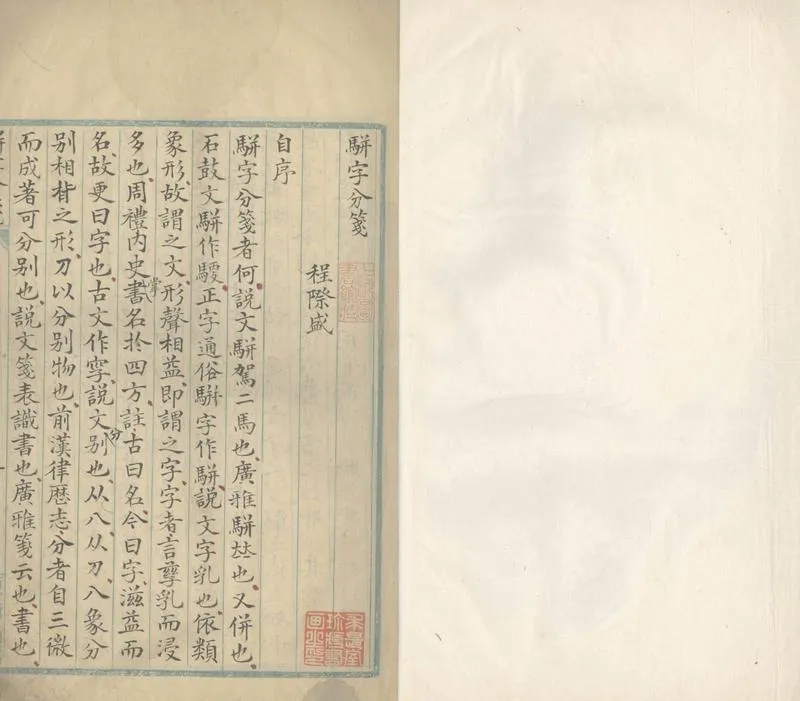 駢字分箋
程際盛
自序
駢字分箋者何說文駢駕二馬也廣雅駢竝也又併也
石鼓文駢作騕正字通俗駢字作駢說文字乳也依類
象形故謂之文形聲相益即謂之字字者言孳乳而浸
多也周禮内史掌書名於四方註古曰名今曰字滋益而
名故更曰字也古文作㝈說文分別也从八从刀八象分
別相背之形刀以分別物也前漢律歷志分者自三微
而成著可分別也說文箋表識書也廣雅箋云也書也